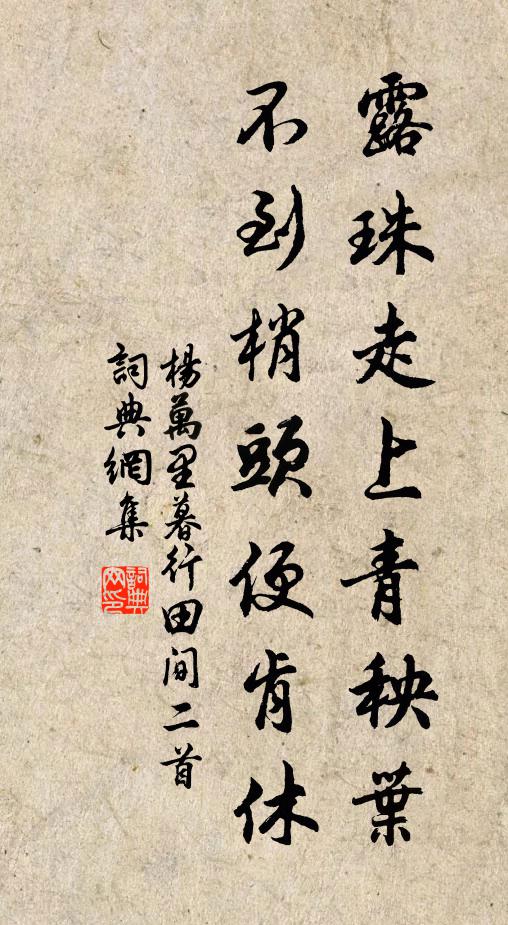 露珠走上青秧葉
不到梢頭便肯休
楊萬里暮行田間二首
詞典網集
詞典网印